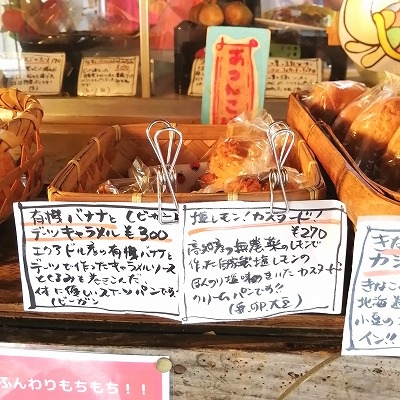 あつあんこ
有機バナナと(ビーガン)
デーツキャラメル ¥300
エクアドル産の有機バナナと
デーツで作ったキャラメルソース
とくるみを巻きこんだ
体に優しいスコーンパンです
(ビーガン
塩レモン!カスタード
¥270
高知産の無農薬のレモンで
作った自家製塩レモンの
ほんのり塩味のきいたカスタード
のクリームパンです!!
(麦、卵、大豆)
きな
カシ
きなこ
北海道
小豆の
イン!!
ふんわりもちもち!!